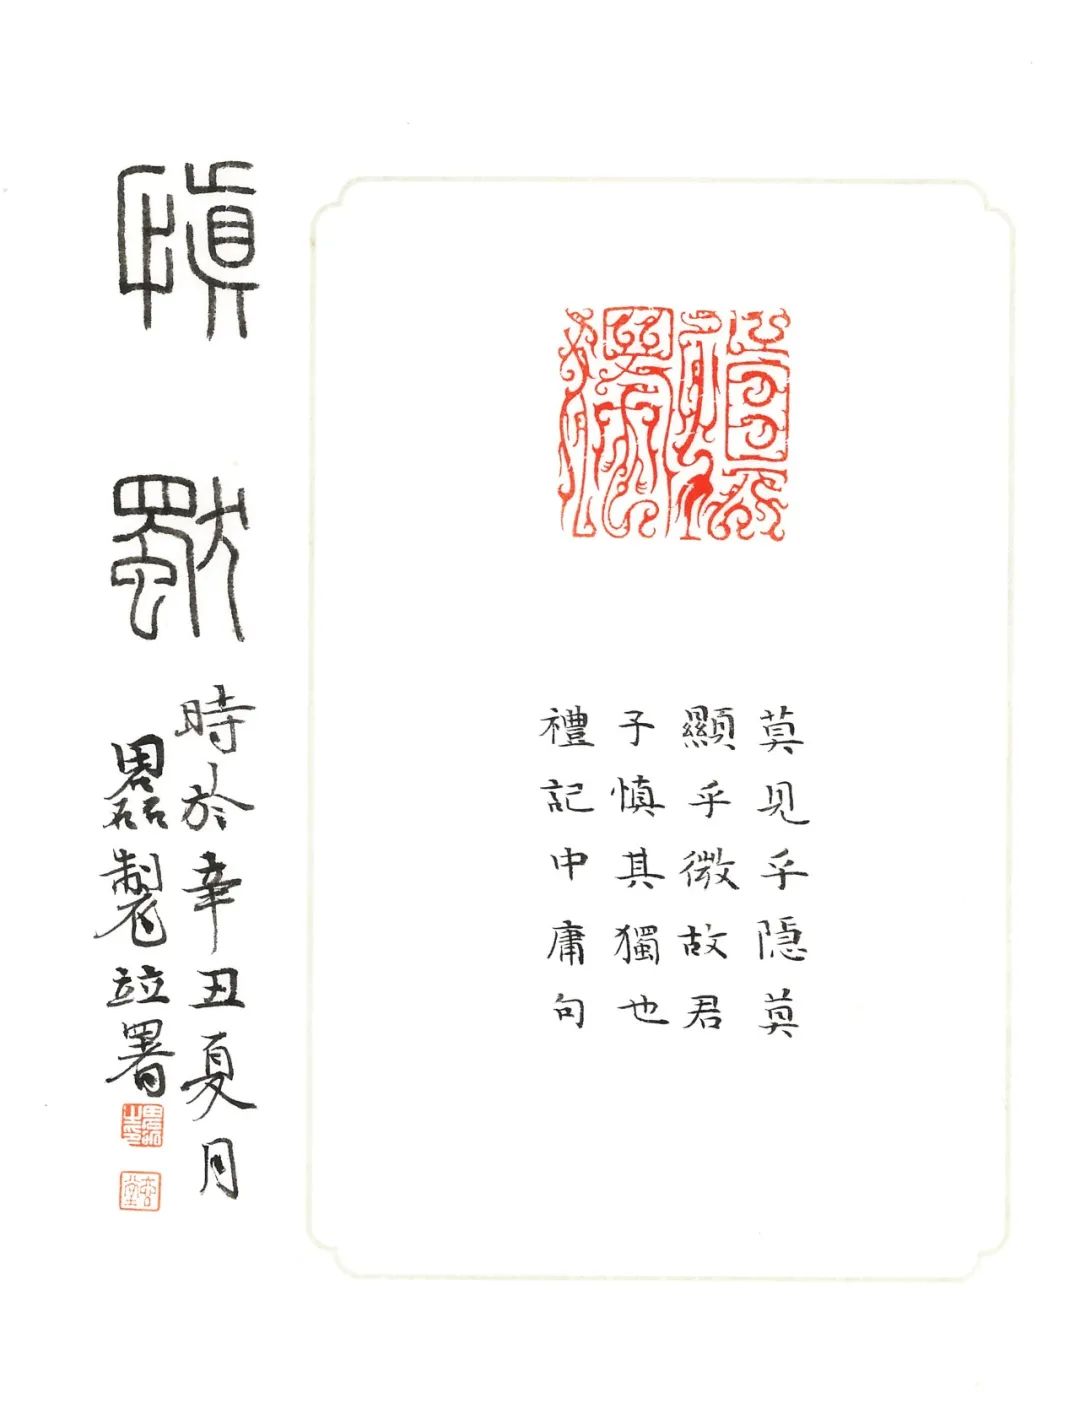 慎獨
莫见乎隐莫
顯乎微故君
子慎其獨也
禮記中庸句
慎獨
時於辛丑夏月
周磊製竝署